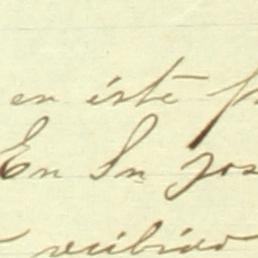 en éste
En Sn Jos
recibido